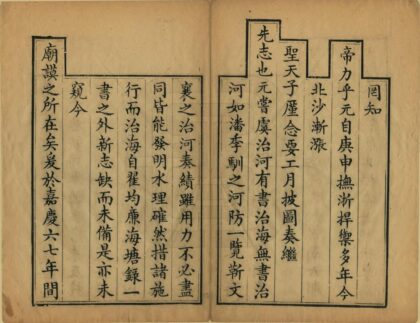 罔知
帝力乎元自庚申撫浙捍禦多年今
北沙漸漲
聖天子廑念要工月披圖奏繼
先志也元嘗虞治河有書治海無書治
河如潘季馴之河防一覽靳文
襄之治河奏績雖用力不必盡
同皆能發明水理確然措諸施
行而治海自翟均廉海塘錄一
書之外新志缺而未備是亦未
窺今
廟謨之所在矣爰於嘉慶六七年間